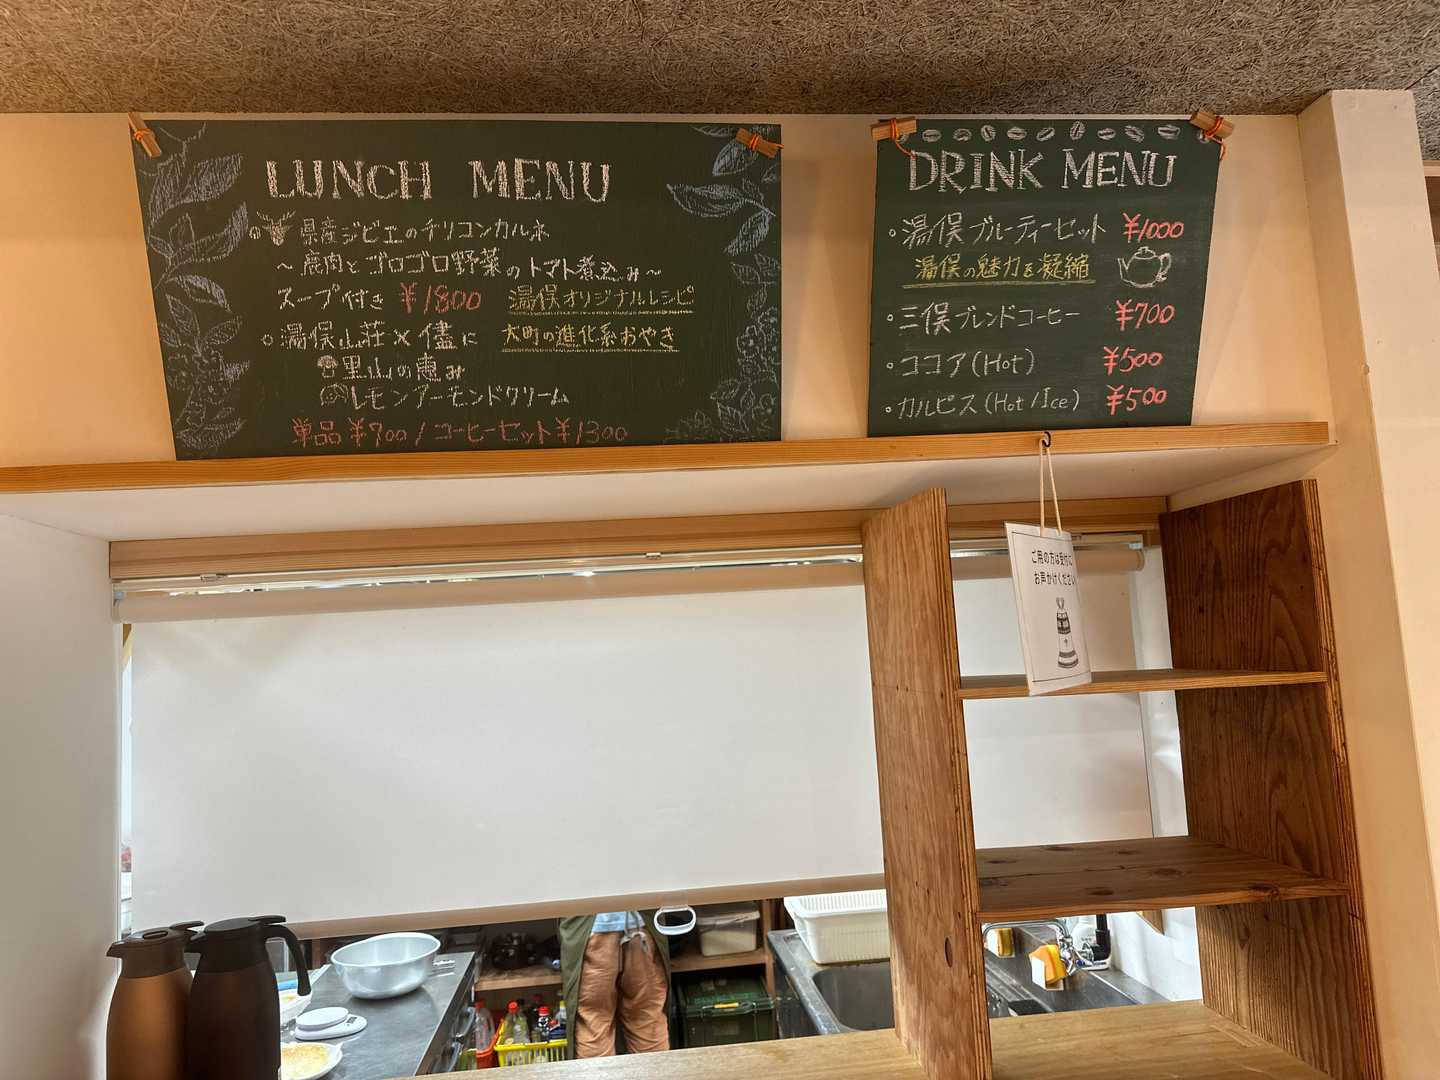 LUNCH MENU
県産ジビエのチリコンカルネ
~鹿肉とゴロゴロ野菜のトマト煮込み~
スープ付き ¥1800 湯俣オリジナルレシピ
湯俣山荘×儘に 大町の進化系おやき
里山の恵み
レモンアーモンドクリーム
単品¥700/コーヒーセット¥1300
DRINK MENU
・湯俣ブルーティーセット ¥1000
湯俣の魅力を凝縮
・三俣ブレンドコーヒー ¥700
・ココア(Hot) ¥500
・カルピス(Hot/Ice) ¥500
ご用の方は受付に
お声かけください